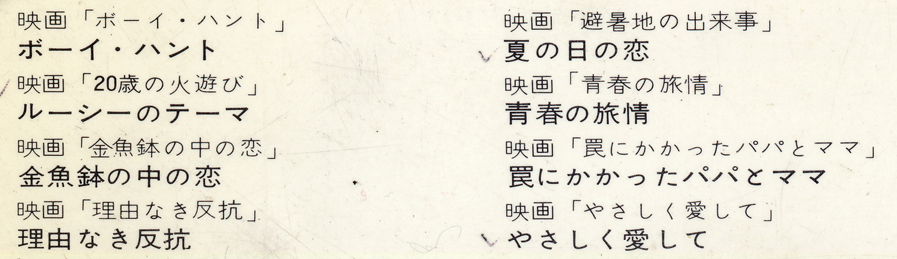 映画「ボーイ・ハント」
ボーイ・ハント
映画「20歳の火遊び」
ルーシーのテーマ
映画「金魚鉢の中の恋」
金魚鉢の中の恋
映画「理由なき反抗」
理由なき反抗
映画「避暑地の出来事」
夏の日の恋
映画「青春の旅情」
青春の旅情
映画「罠にかかったパパとママ」
罠にかかったパパとママ
映画「やさしく愛して」
やさしく愛して